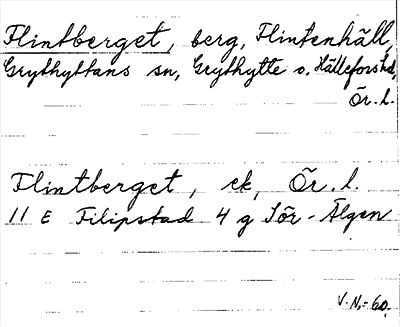 Flintberget, berg, Flintenhäll,
Grythyttans sn, Grythytte o. Hälleforshd,
Ör. l.
Flintberget, ek, Ör. l.
11 E Filipstad 4 g Sör-Älgen
V. N. -60.